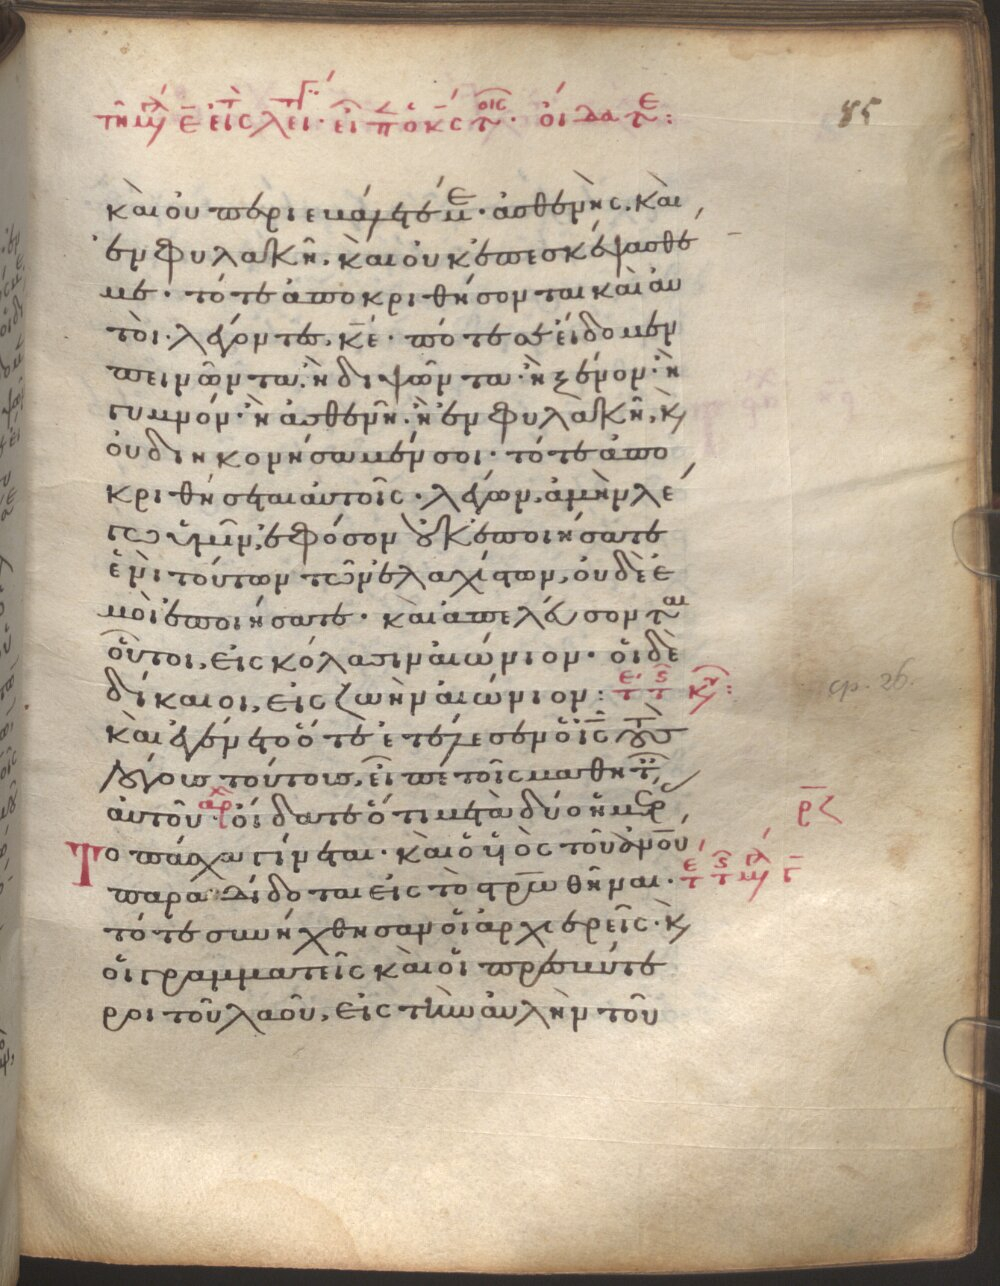 τῇ μεγάλῃ ε̄ εἰς τὴν λειτουργ· εἶπεν ὁ κ̄ς τοῖς· οἴδατε:
85
καὶ οὐ περιεβάλετέ με· ἀσθενὴς. καὶ
ἐν φυλακῆ, καὶ οὐκ ἐπεσκέψασθέ
με· τότε ἀποκριθήσονται καὶ αυ
τὸι· λέγοντες, κ̄ε· πότε σε εἴδομεν
πεινῶντα. ἢ διψῶντα· ἢ ξένον· ἢ
γυμνόν· ἢ ἀσθενῆ. ἢ ἐν φυλακῆ, κ
ου διηκονήσαμέν σοι· τότε ἀπο
κριθήσεται αυτοῖς· λέγων, ἀμὴν λέ
γω ὑμῖν, ἐφόσον οὐκ ἐποιήσατε
ἑνὶ τούτων τῶν ἐλαχίστων, ουδὲ ἐ
μοὶ ἐποιήσατε· καὶ απελεύσονται
οὗτοι, εἰς κόλασιν αιώνιον· οἱ δὲ
δίκαιοι, εἰς ζωὴν αιώνιον:
καὶ ἐγένετο ὅτε ἐτέλεσεν ὁ ις τοὺς
λόγους τούτους, εἶπε τοῖς μαθηταῖς
αὐτοῦ· οἴδατε ὅτι μετὰ δύο ἡμέρας
ρ̄ζ
Το πάσχα γίνεται· καὶ ὁ ὑιὸς τοῦ ἀν̄ου
παραδίδοται εἰς τὸ στρω̄θῆναι·
τότε συνήχθησαν οἱ ἀρχιερεῖς· κ
οἱ γραμματεῖς καὶ οἱ πρεσβύτε
ροι τοῦ λαοῦ, εἰς τὴν ἀυλὴν τοῦ
cp. 26.